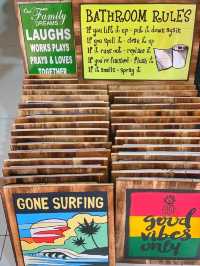 Our Family
DREAMS
LAUGHS
WORKS PLAYS
PRAYS & LOVES
TOGETHER
BATHROOM RULES
If you lift it up - put it down again
If you spill it - clean it up
If it runs out - replace it
If you're finished - flush it
If it smells - spray it
GONE SURFING
good
vibes
only